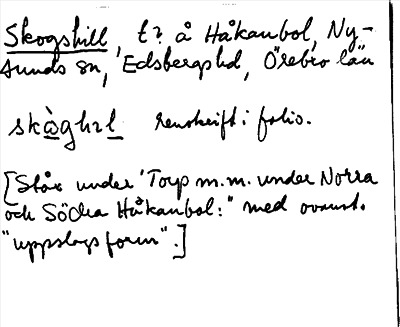 Skogshill, t? å Håkanbol, Ny-
sunds sn, Edsbergs hd, Örebro län
skàghɩl renskrift i folio.
[Står under 'Torp m.m. under Norra
och Södra Håkanbol:" med ovanst.
"uppslagsform".]